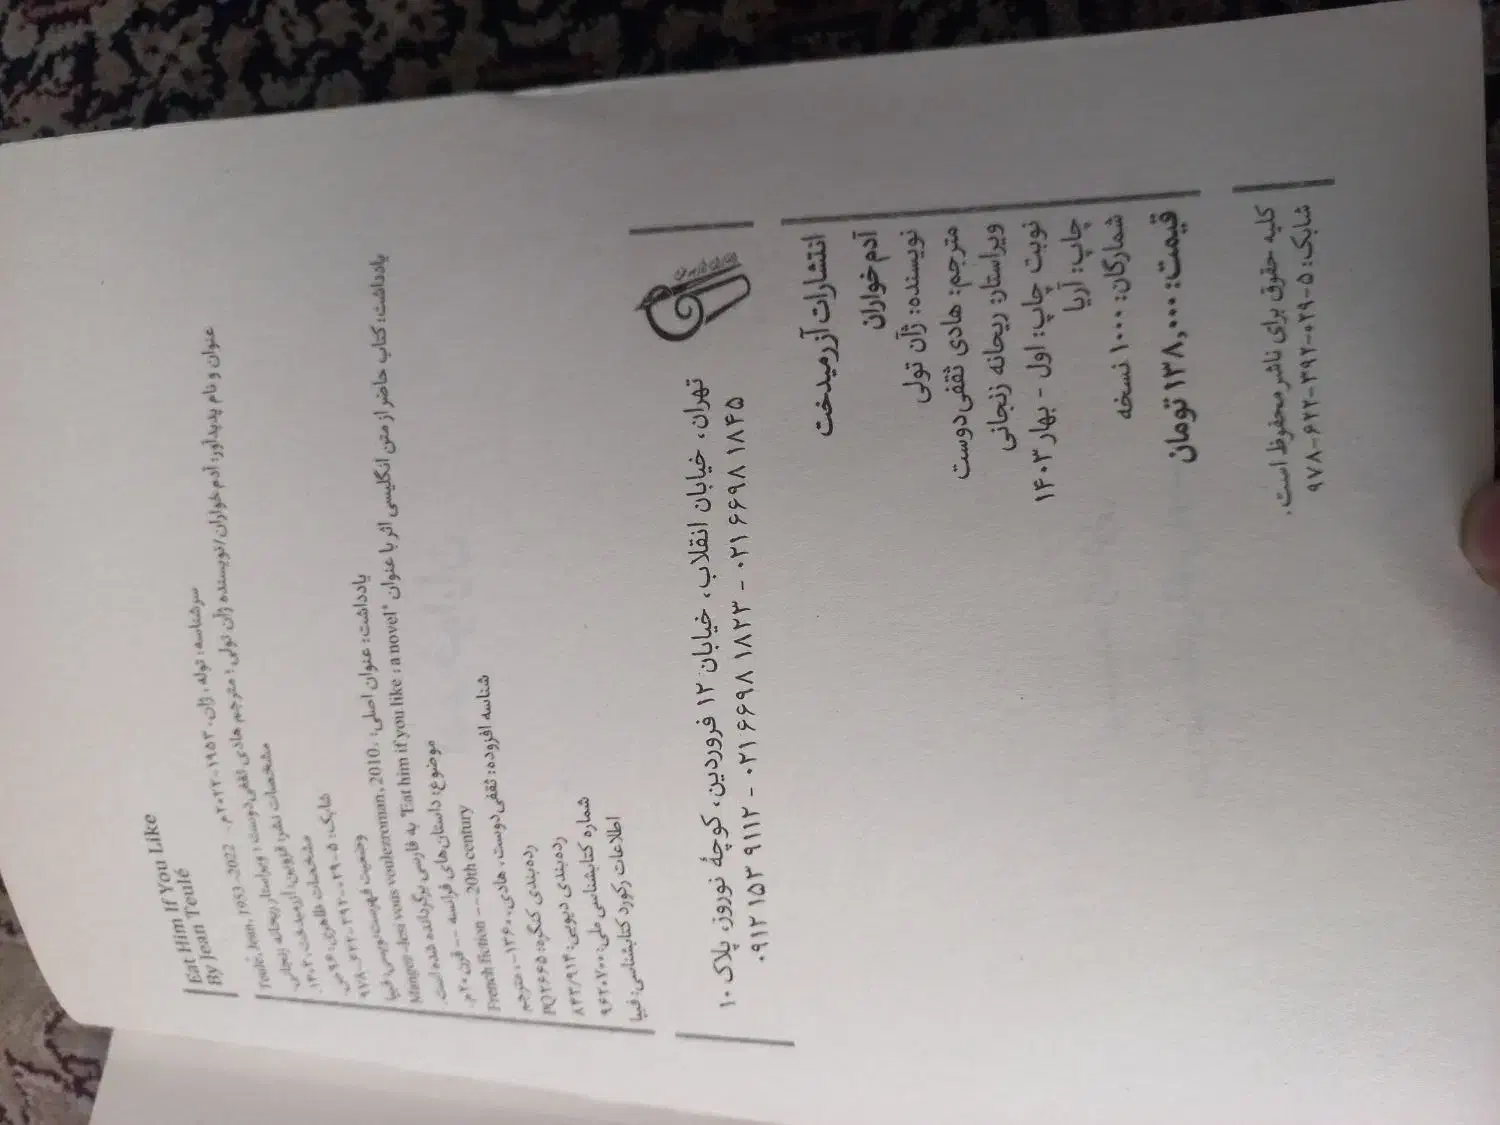 Eat Him If You Like
By Jean Teulé
سرشناسه: توله، ژان، ۱۹۵۳-۲۰۲۲م.
Teulé, Jean, 1953-2022
عنوان و نام پدیدآور: آدم‌خواران/نویسنده ژان تولی؛ مترجم هادی ثقفی‌دوست؛ ویراستار ریحانه زنجانی.
مشخصات نشر: قزوین: آزرمیدخت، ۱۴۰۲.
مشخصات ظاهری: ۹۶ص.
شابک: ۵-۰۲۹-۳۹۲-۶۲۲-۹۷۸
وضعیت فهرست‌نویسی: فیپا
یادداشت: عنوان اصلی: Mangez-le si vous voulez: roman, 2010.
یادداشت: کتاب حاضر از متن انگلیسی اثر با عنوان "Eat him if you like : a novel" به فارسی برگردانده شده است.
موضوع: داستان‌های فرانسه -- قرن ۲۰م.
French fiction -- 20th century
شناسه افزوده: ثقفی‌دوست، هادی، ۱۳۶۰-، مترجم
رده‌بندی کنگره: PQ۲۶۶۵
رده‌بندی دیویی: ۸۴۳/۹۱۴
شماره کتابشناسی ملی: ۹۶۲۰۷۰۰
اطلاعات رکورد کتابشناسی: فیپا
تهران، خیابان انقلاب، خیابان ۱۲ فروردین، کوچهٔ نوروز، پلاک ۱۰
۰۲۱ ۶۶۹۸ ۱۸۴۵ - ۰۲۱ ۶۶۹۸ ۱۸۲۳ - ۰۹۱۲ ۱۵۳ ۹۱۱۲
انتشارات آزرمیدخت
آدم‌خواران
نویسنده: ژان تولی
مترجم: هادی ثقفی‌دوست
ویراستار: ریحانه زنجانی
نوبت چاپ: اول - بهار ۱۴۰۳
چاپ: آریا
شمارگان: ۱۰۰۰ نسخه
قیمت: ۱۳۸,۰۰۰ تومان
کلیه حقوق برای ناشر محفوظ است.
شابک: ۵-۰۲۹-۳۹۲-۶۲۲-۹۷۸